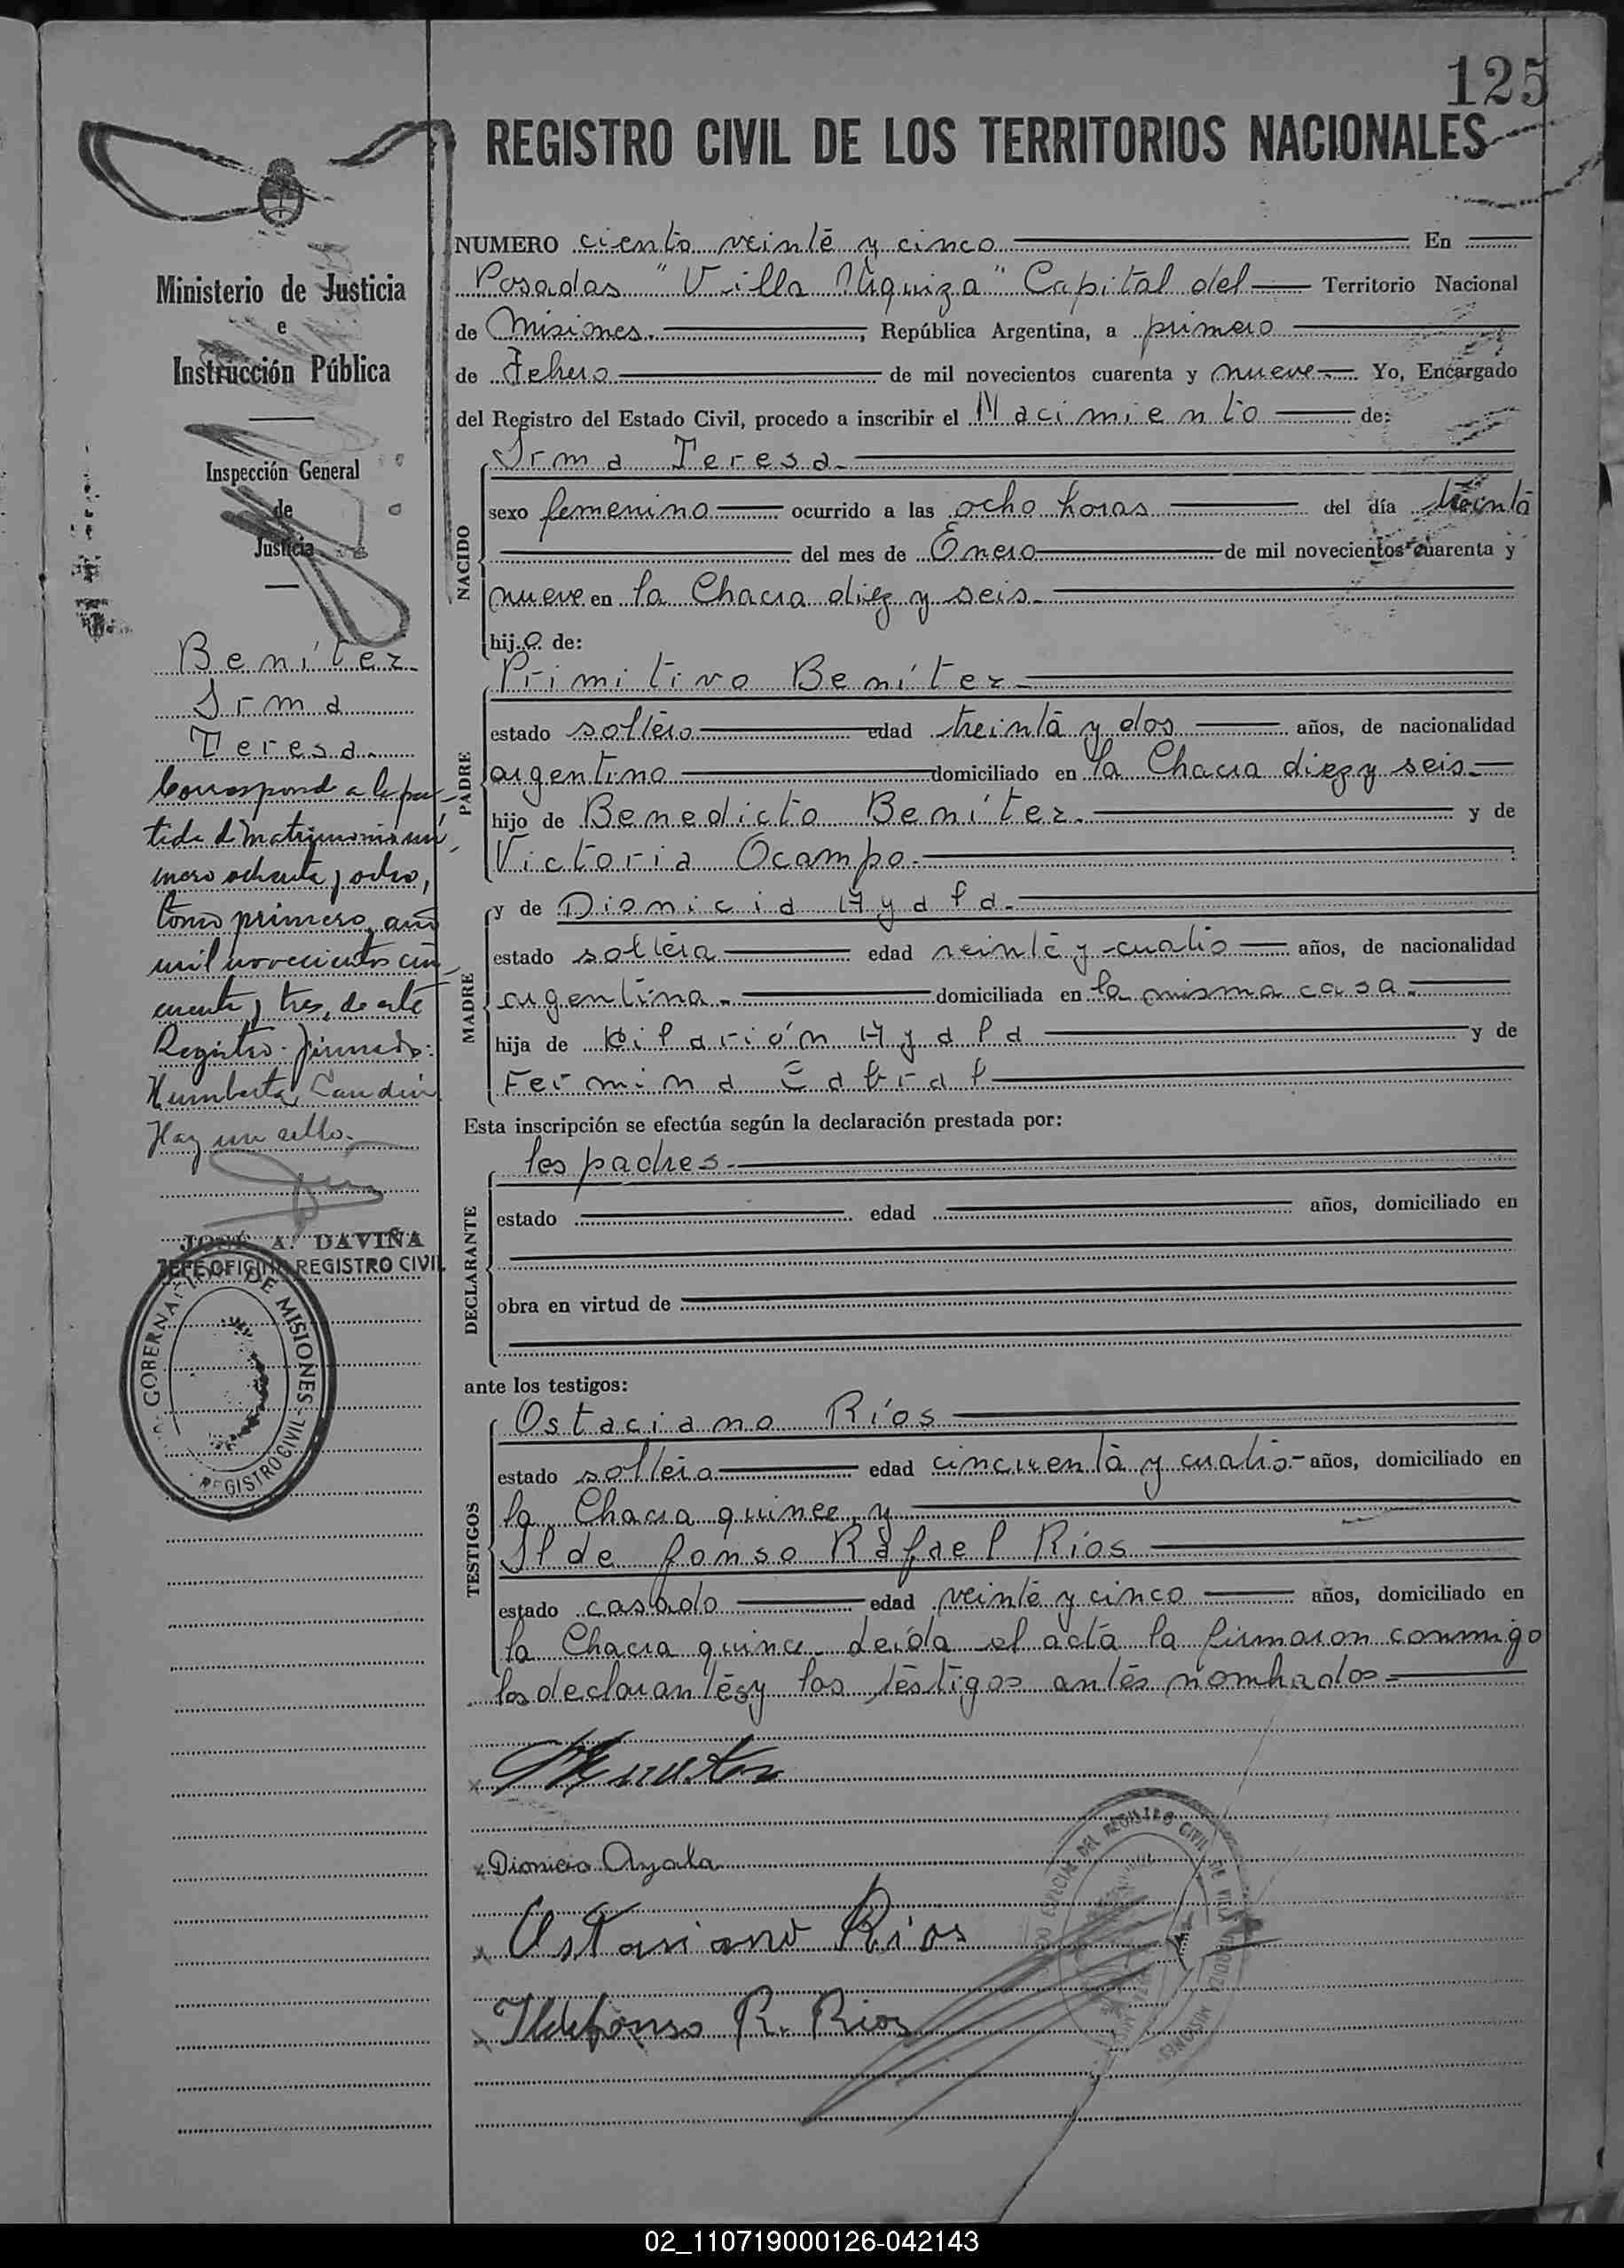 125
REGISTRO CIVIL DE LOS TERRITORIOS NACIONALES
Ministerio de Justicia
e
Instrucción Pública
Inspección General
de
Justicia
Benítez
Irma
Teresa.
Corresponde a la par-
tida d matrimonio nú-
mero ochenta y ocho,
tomo primero, año
mil novecientos cin-
cuenta y tres, de este
Registro. firmado:
Humberto
Hay un sello.
JOSÉ A. DAVIÑA
JEFE OFICINA REGISTRO CIVIL
GOBERNACION DE MISIONES
REGISTRO CIVIL
NUMERO ciento veinte y cinco En
Posadas "Villa Urquiza" Capital del Territorio Nacional
de Misiones. , República Argentina, a primero
de Febrero de mil novecientos cuarenta y nueve Yo, Encargado
del Registro del Estado Civil, procedo a inscribir el Nacimiento de:
NACIDO
Irma Teresa.
sexo femenino ocurrido a las ocho horas del día treinta
del mes de Enero de mil novecientos cuarenta y
nueve en la Chacra diez y seis.
hija de:
PADRE
Primitivo Benítez.
estado soltero edad treinta y dos años, de nacionalidad
argentino domiciliado en la Chacra diez y seis.
hijo de Benedicto Benítez. y de
Victoria Ocampo.
MADRE
y de Dionicia Ayala.
estado soltera edad veinte y cuatro años, de nacionalidad
argentina. domiciliada en la misma casa.
hija de Hilarión Ayala y de
Fermina Cabral
Esta inscripción se efectúa según la declaración prestada por:
DECLARANTE
los padres.
estado edad años, domiciliado en
obra en virtud de
ante los testigos:
TESTIGOS
Ostaciano Ríos
estado soltero edad cincuenta y cuatro.- años, domiciliado en
la Chacra quince, y
Ildefonso Rafael Ríos
estado casado edad veinte y cinco años, domiciliado en
la Chacra quince. Leída el acta la firmaron conmigo
los declarantes y los testigos antes nombrados.
x
x Dionicia Ayala
x Ostasiano Ríos
x Ildefonso R. Rios
DEL REGISTRO CIVIL DE VILLA URQUIZA MISIONES
02_110719000126-042143